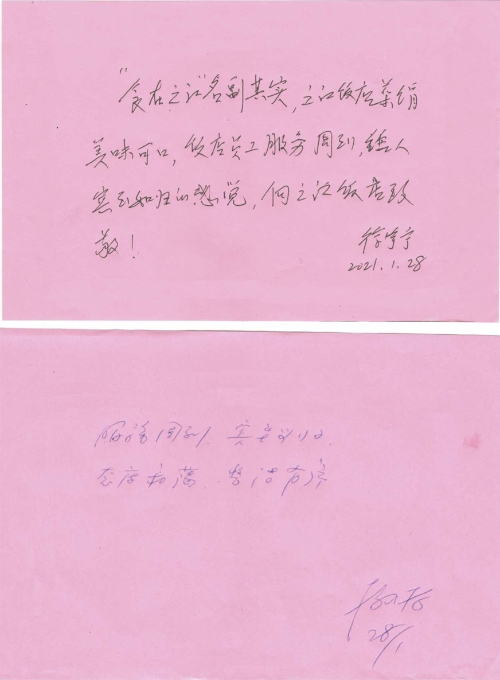 “食在之江”名副其实，之江饭店菜绢
美味可口，饭店员工服务周到，给人
宾至如归的感觉，向之江饭店致
敬！
徐
2021.1.28
服务周到 宾至如归
态度和蔼 整洁有序
28/1